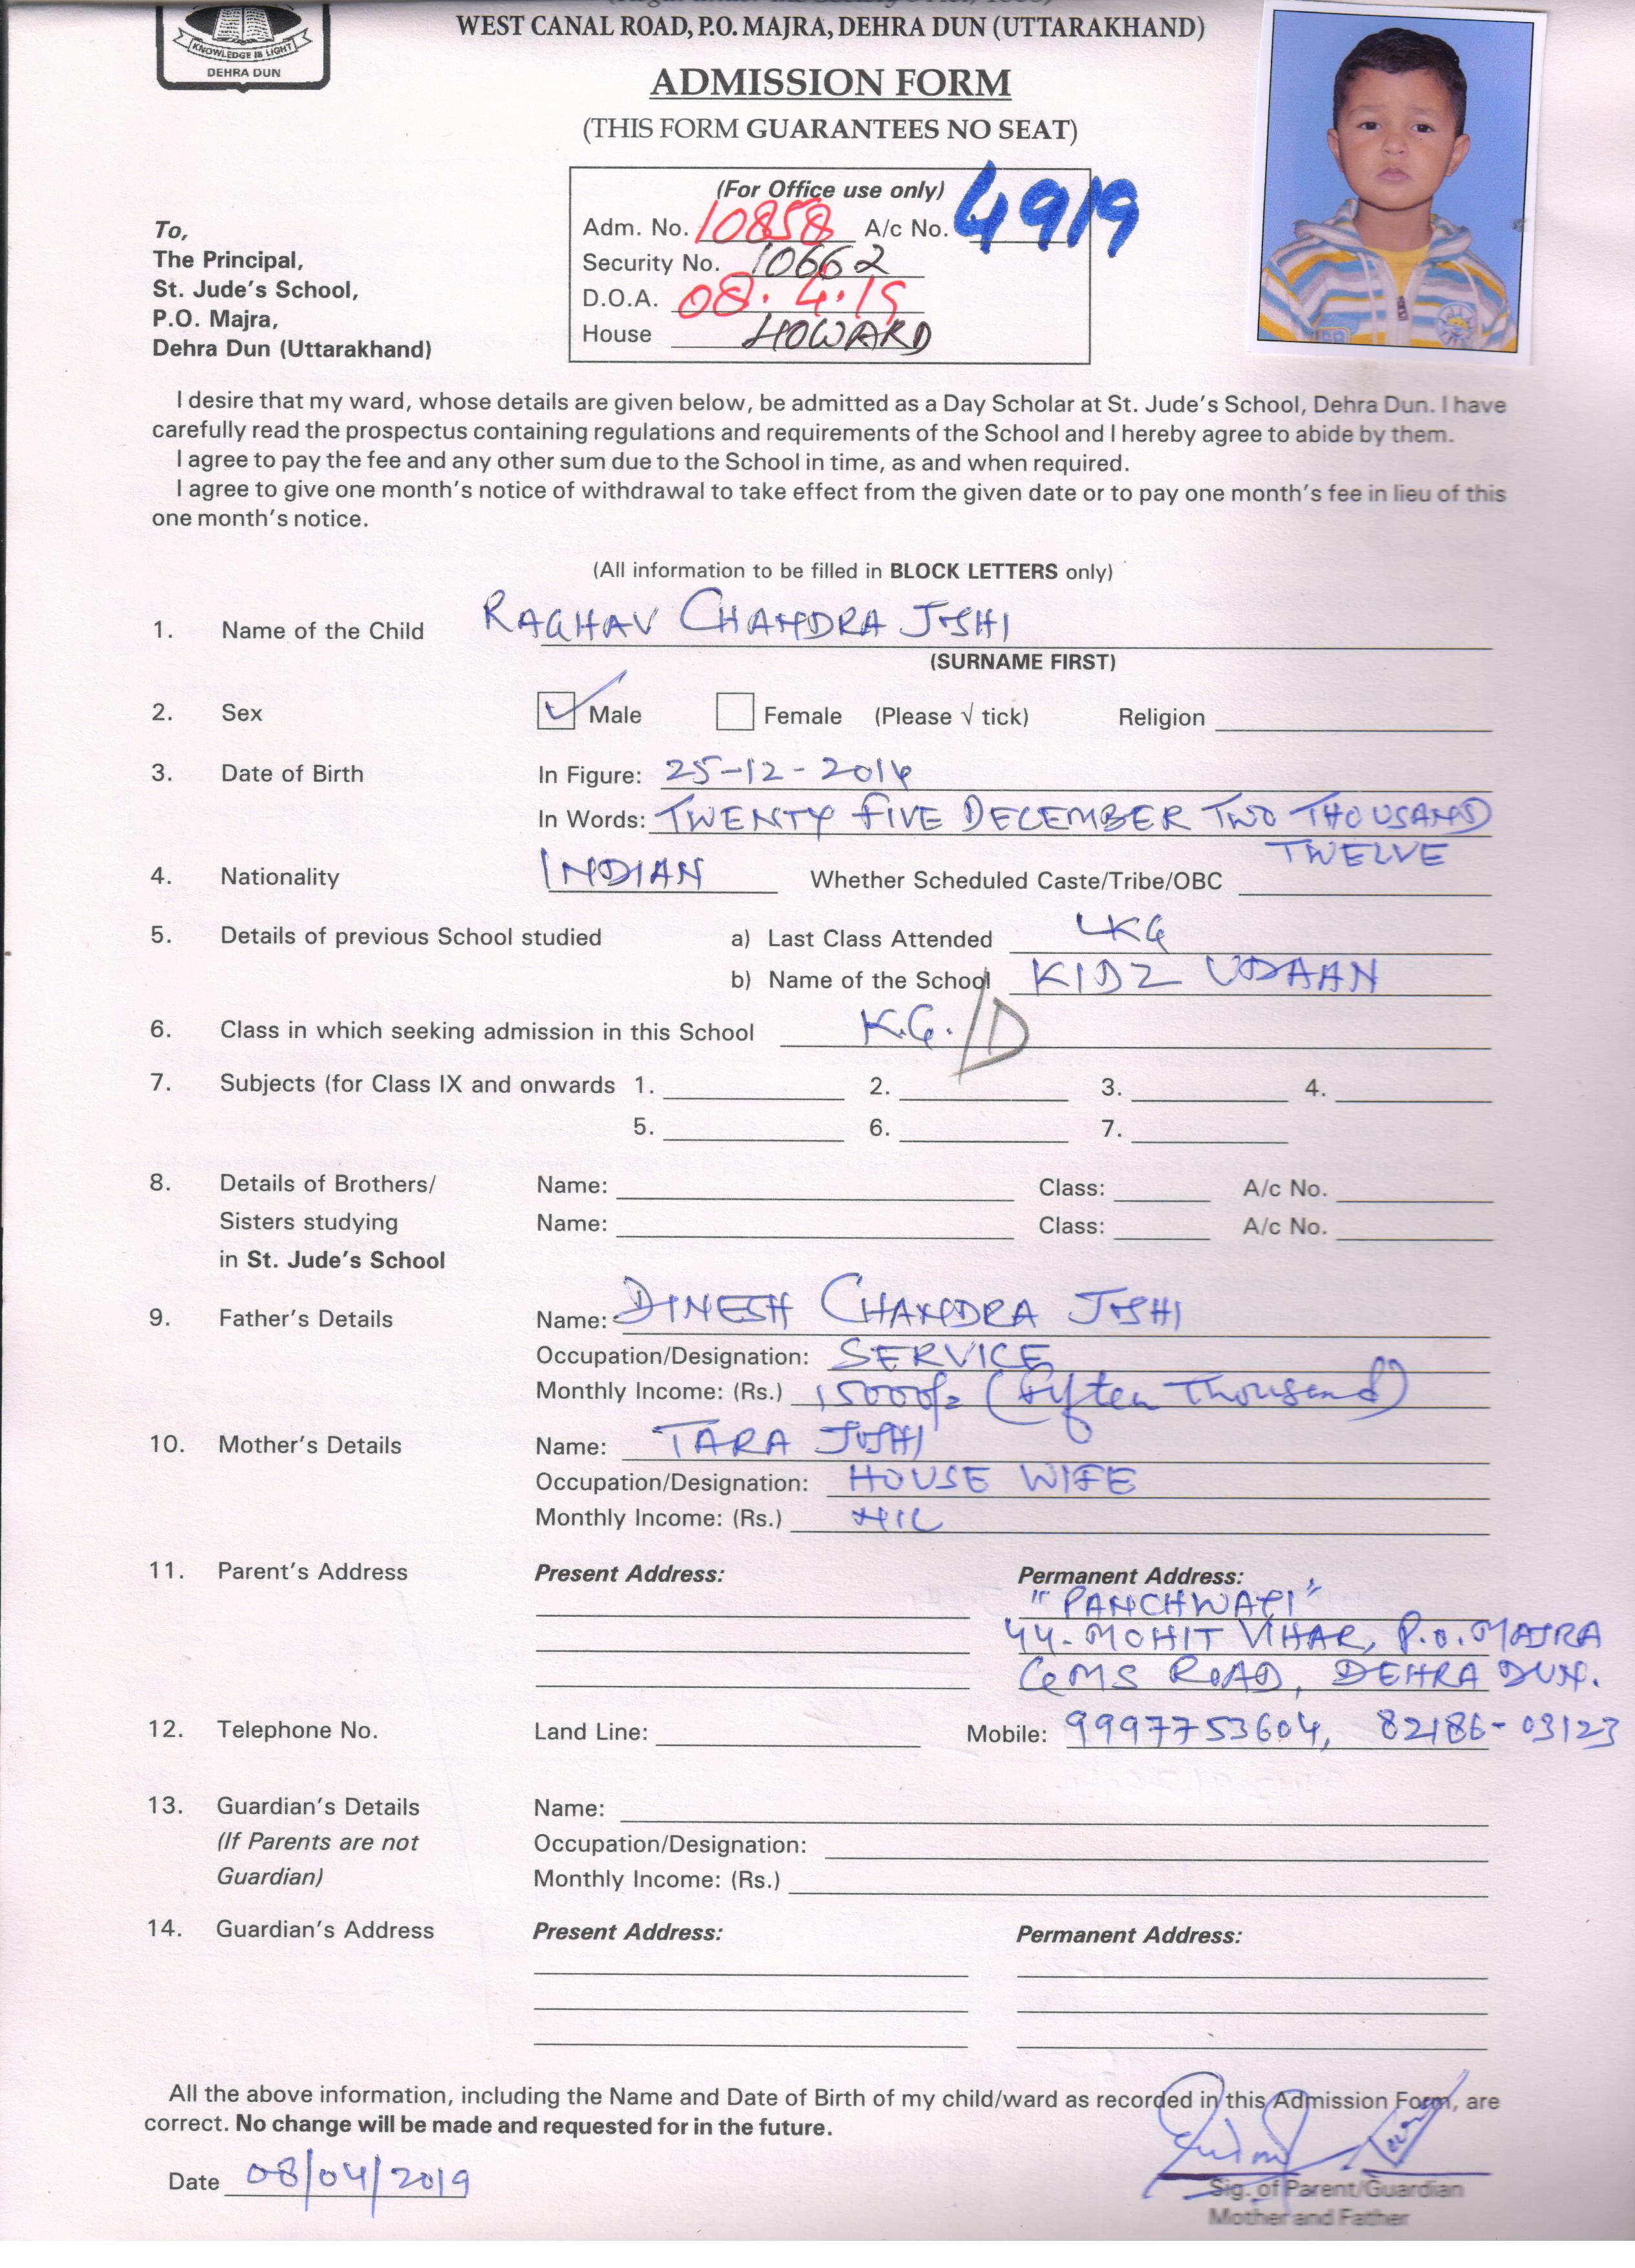 KNOWLEDGE IS LIGHT
DEHRA DUN
WEST CANAL ROAD, P.O. MAJRA, DEHRA DUN (UTTARAKHAND)
ADMISSION FORM
(THIS FORM GUARANTEES NO SEAT)
(For Office use only)
Adm. No. 10858 A/c No. 4919
Security No. 10662
D.O.A. 08.4.19
House HOWARD
To,
The Principal,
St. Jude's School,
P.O. Majra,
Dehra Dun (Uttarakhand)
I desire that my ward, whose details are given below, be admitted as a Day Scholar at St. Jude's School, Dehra Dun. I have
carefully read the prospectus containing regulations and requirements of the School and I hereby agree to abide by them.
I agree to pay the fee and any other sum due to the School in time, as and when required.
I agree to give one month's notice of withdrawal to take effect from the given date or to pay one month's fee in lieu of this
one month's notice.
(All information to be filled in BLOCK LETTERS only)
1. Name of the Child RAGHAV CHANDRA JOSHI
(SURNAME FIRST)
2. Sex ✓ Male Female (Please √ tick) Religion
3. Date of Birth In Figure: 25-12-2014
In Words: TWENTY FIVE DECEMBER TWO THOUSAND
TWELVE
4. Nationality INDIAN Whether Scheduled Caste/Tribe/OBC
5. Details of previous School studied a) Last Class Attended LKG
b) Name of the School KIDZ UDAAN
6. Class in which seeking admission in this School K.G./D
7. Subjects (for Class IX and onwards 1. 2. 3. 4.
5. 6. 7.
8. Details of Brothers/ Name: Class: A/c No.
Sisters studying Name: Class: A/c No.
in St. Jude's School
9. Father's Details Name: DINESH CHANDRA JOSHI
Occupation/Designation: SERVICE
Monthly Income: (Rs.) 15000/= (Fiften Thousand)
10. Mother's Details Name: TARA JOSHI
Occupation/Designation: HOUSE WIFE
Monthly Income: (Rs.) NIL
11. Parent's Address Present Address: Permanent Address:
"PANCHWATI"
44-MOHIT VIHAR, P.O. MAJRA
GMS ROAD, DEHRA DUN.
12. Telephone No. Land Line: Mobile: 9997753604, 82186-03123
13. Guardian's Details Name:
(If Parents are not Occupation/Designation:
Guardian) Monthly Income: (Rs.)
14. Guardian's Address Present Address: Permanent Address:
All the above information, including the Name and Date of Birth of my child/ward as recorded in this Admission Form, are
correct. No change will be made and requested for in the future.
Date 08/04/2019
Sig. of Parent/Guardian
Mother and Father